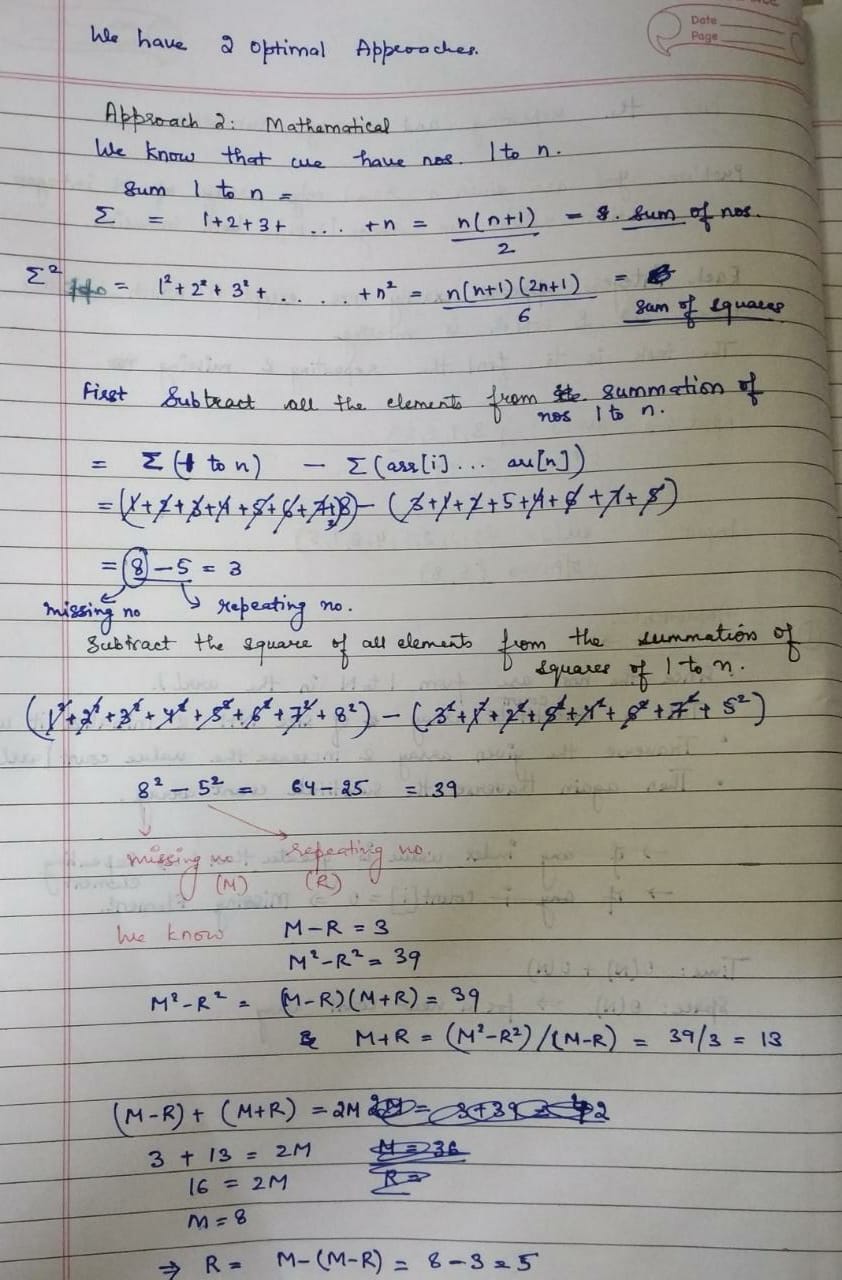 Date
Page
We have 2 optimal Approaches.
Approach 2: Mathematical
We know that we have nos. 1 to n.
Sum 1 to n =
Σ = 1+2+3+ ... +n = n(n+1)/2 = S. Sum of nos.
Σ² = 1²+2²+3²+ ..... +n² = n(n+1)(2n+1)/6 = sum of squares
First Subtract all the elements from the summation of
nos 1 to n.
= Σ(1 to n) - Σ(arr[i]... arr[n])
= (1+2+3+4+5+6+7+8) - (3+1+2+5+4+6+7+5)
= 8 - 5 = 3
missing no repeating no.
Subtract the square of all elements from the summation of
squares of 1 to n.
(1²+2²+3²+4²+5²+6²+7²+8²) - (3²+1²+2²+5²+4²+6²+7²+5²)
8² - 5² = 64 - 25 = 39
missing no repeating no.
(M) (R)
We know M-R = 3
M²-R² = 39
M²-R² = (M-R)(M+R) = 39
M+R = (M²-R²)/(M-R) = 39/3 = 13
(M-R) + (M+R) = 2M
3 + 13 = 2M
16 = 2M
M = 8
⇒ R = M-(M-R) = 8-3 = 5